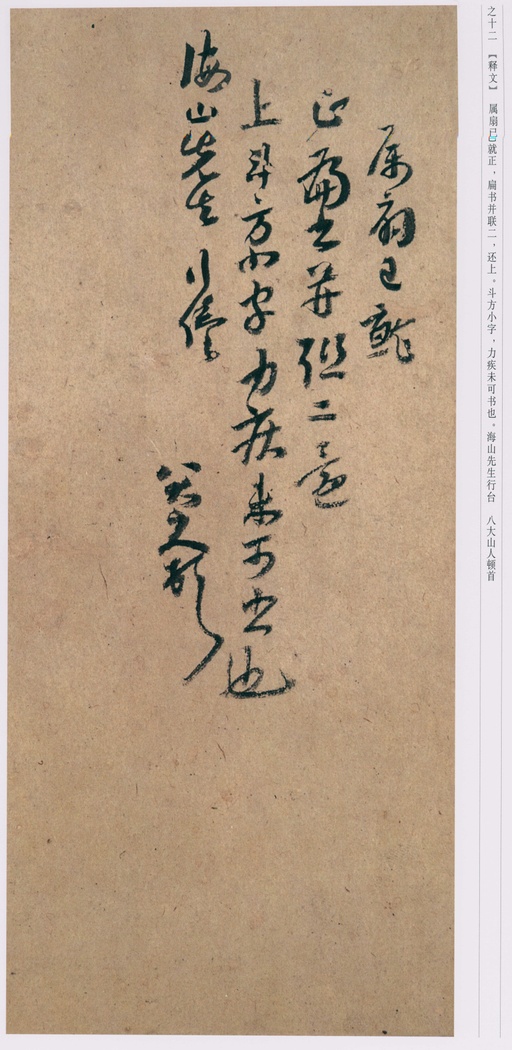 之十二 【释文】 属扇已就正，扁书并联二，还上。斗方小字，力疾未可书也。海山先生行台 八大山人顿首
属扇已就
正扁书并联二还
上斗方小字力疾未可书也
海山先生行台
八大山人顿首